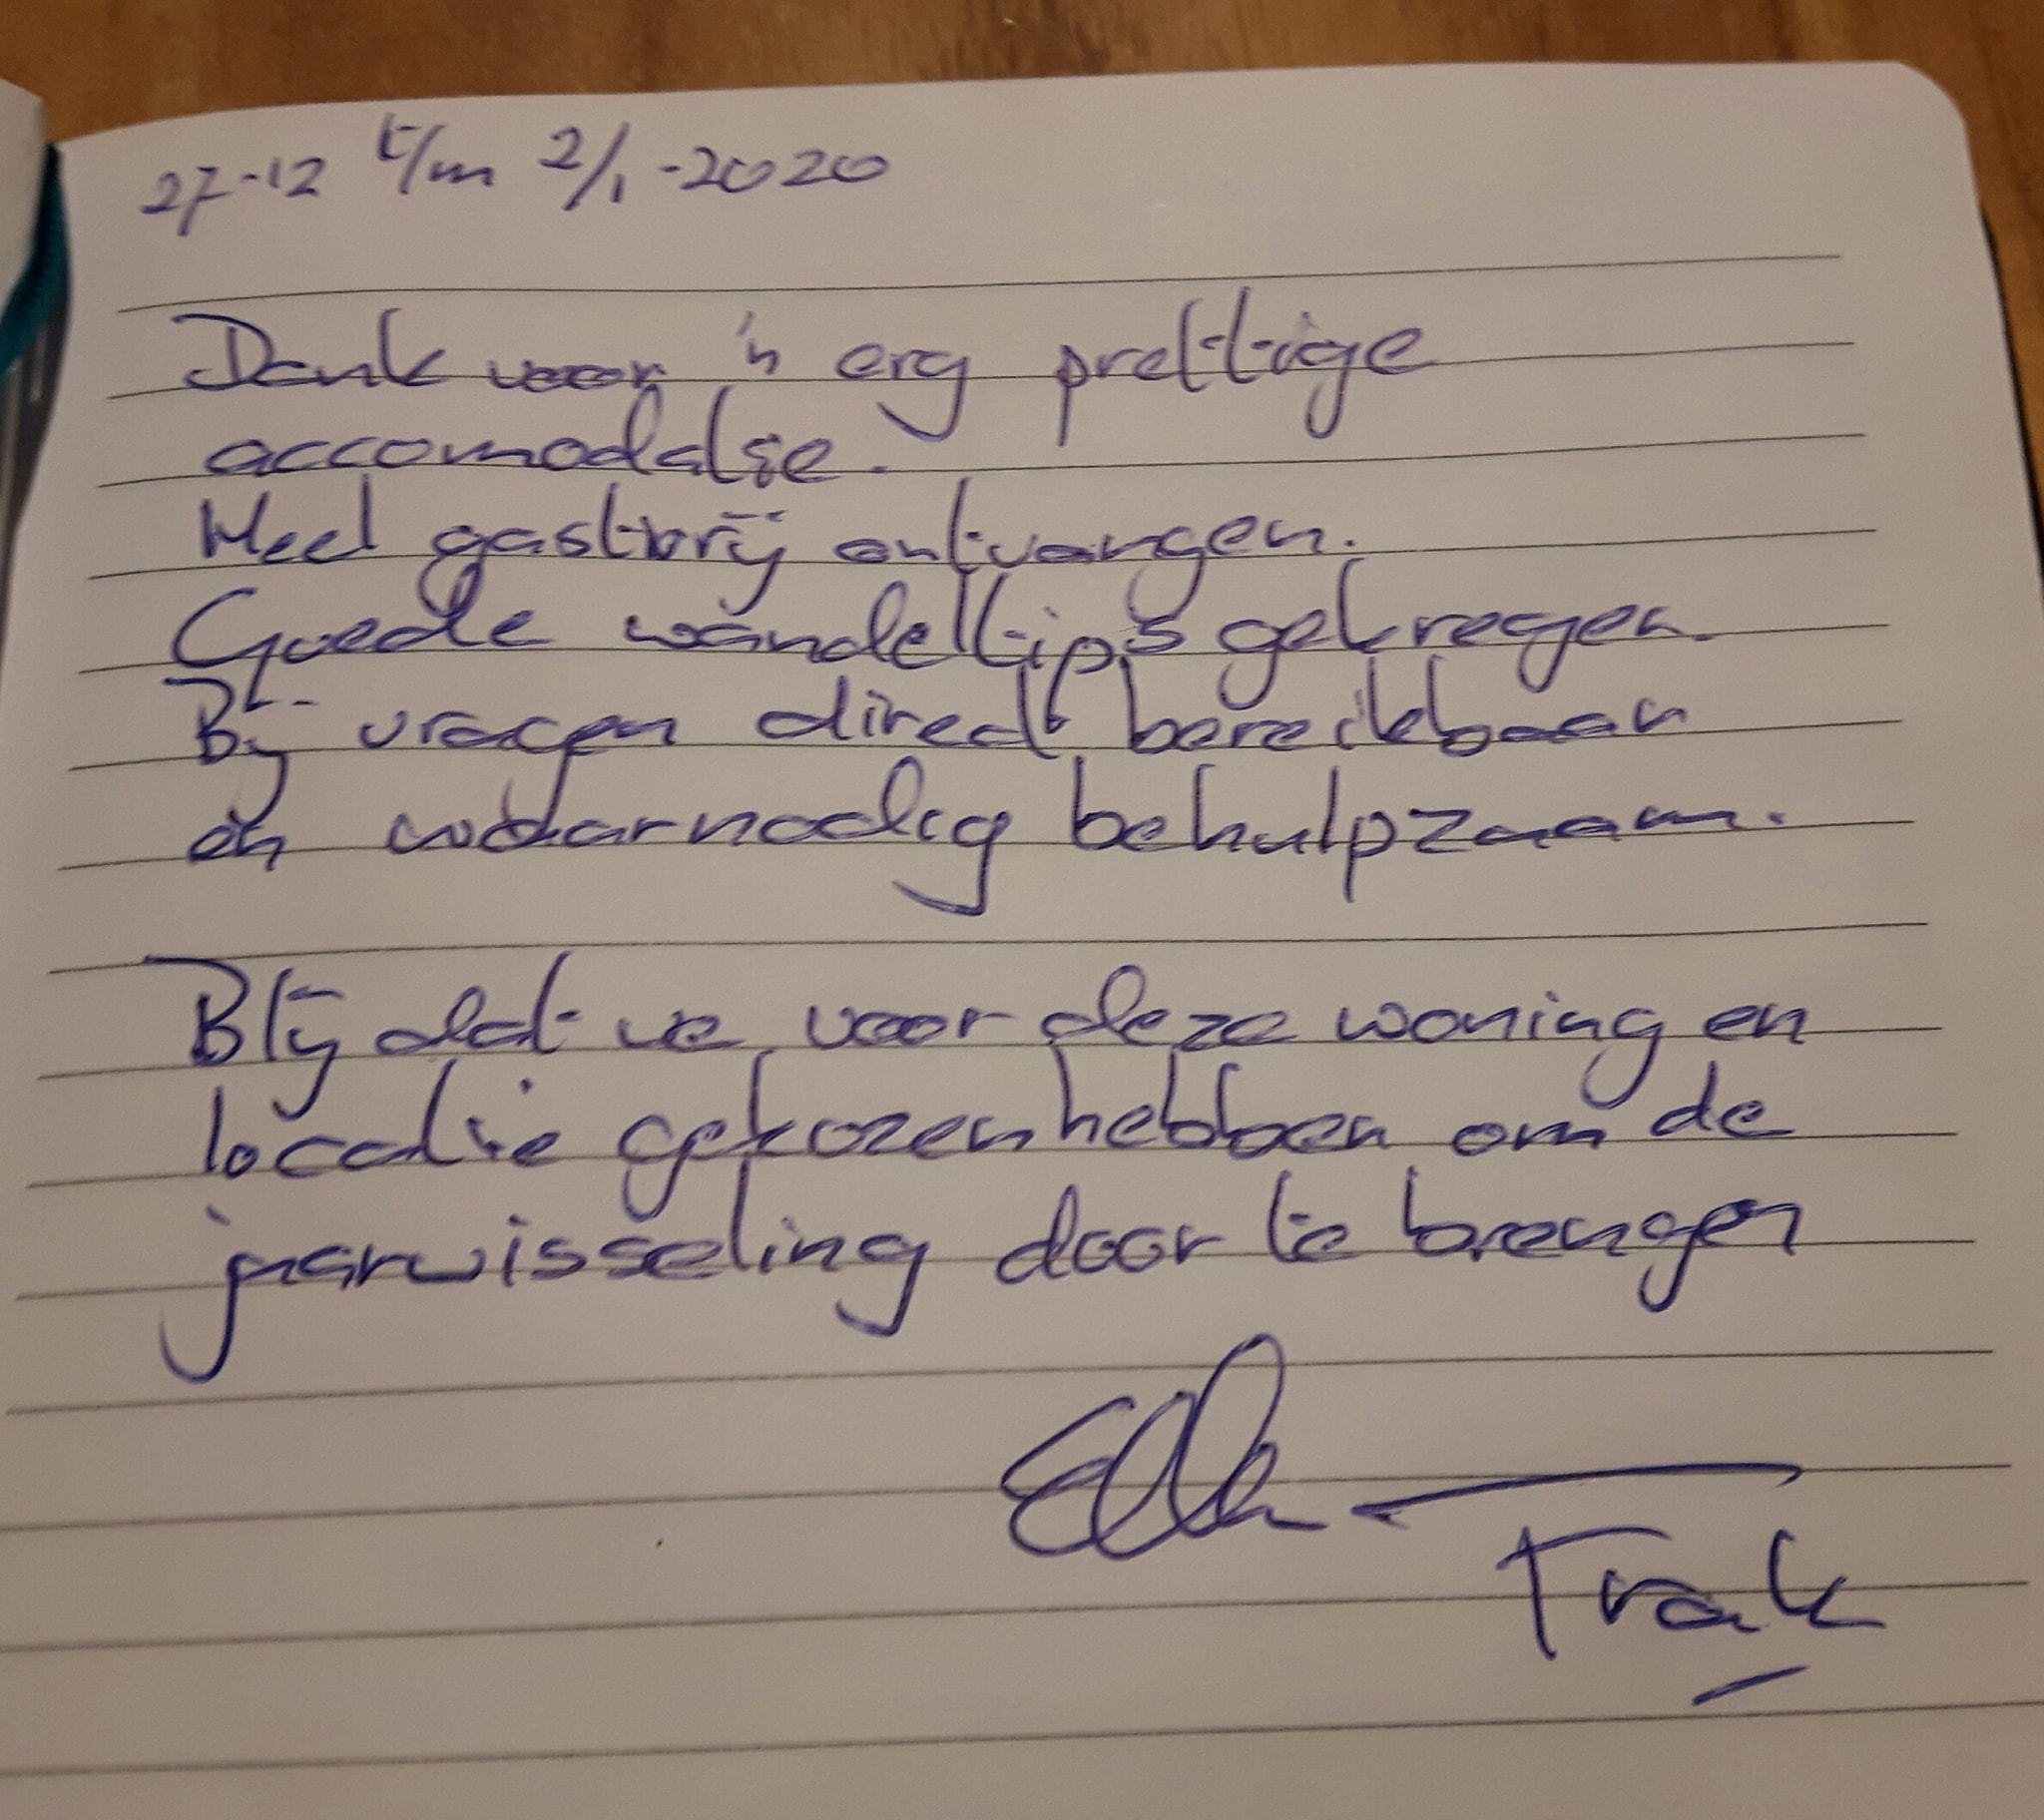 27-12 t/m 2/1-2020
Dank voor 'n erg prettige
accomodatie.
Heel gastvrij ontvangen.
Goede wandeltips gekregen.
Bij vragen direct bereikbaar
én waarnodig behulpzaam.
Blij dat we voor deze woning en
locatie gekozen hebben om de
jaarwisseling door te brengen